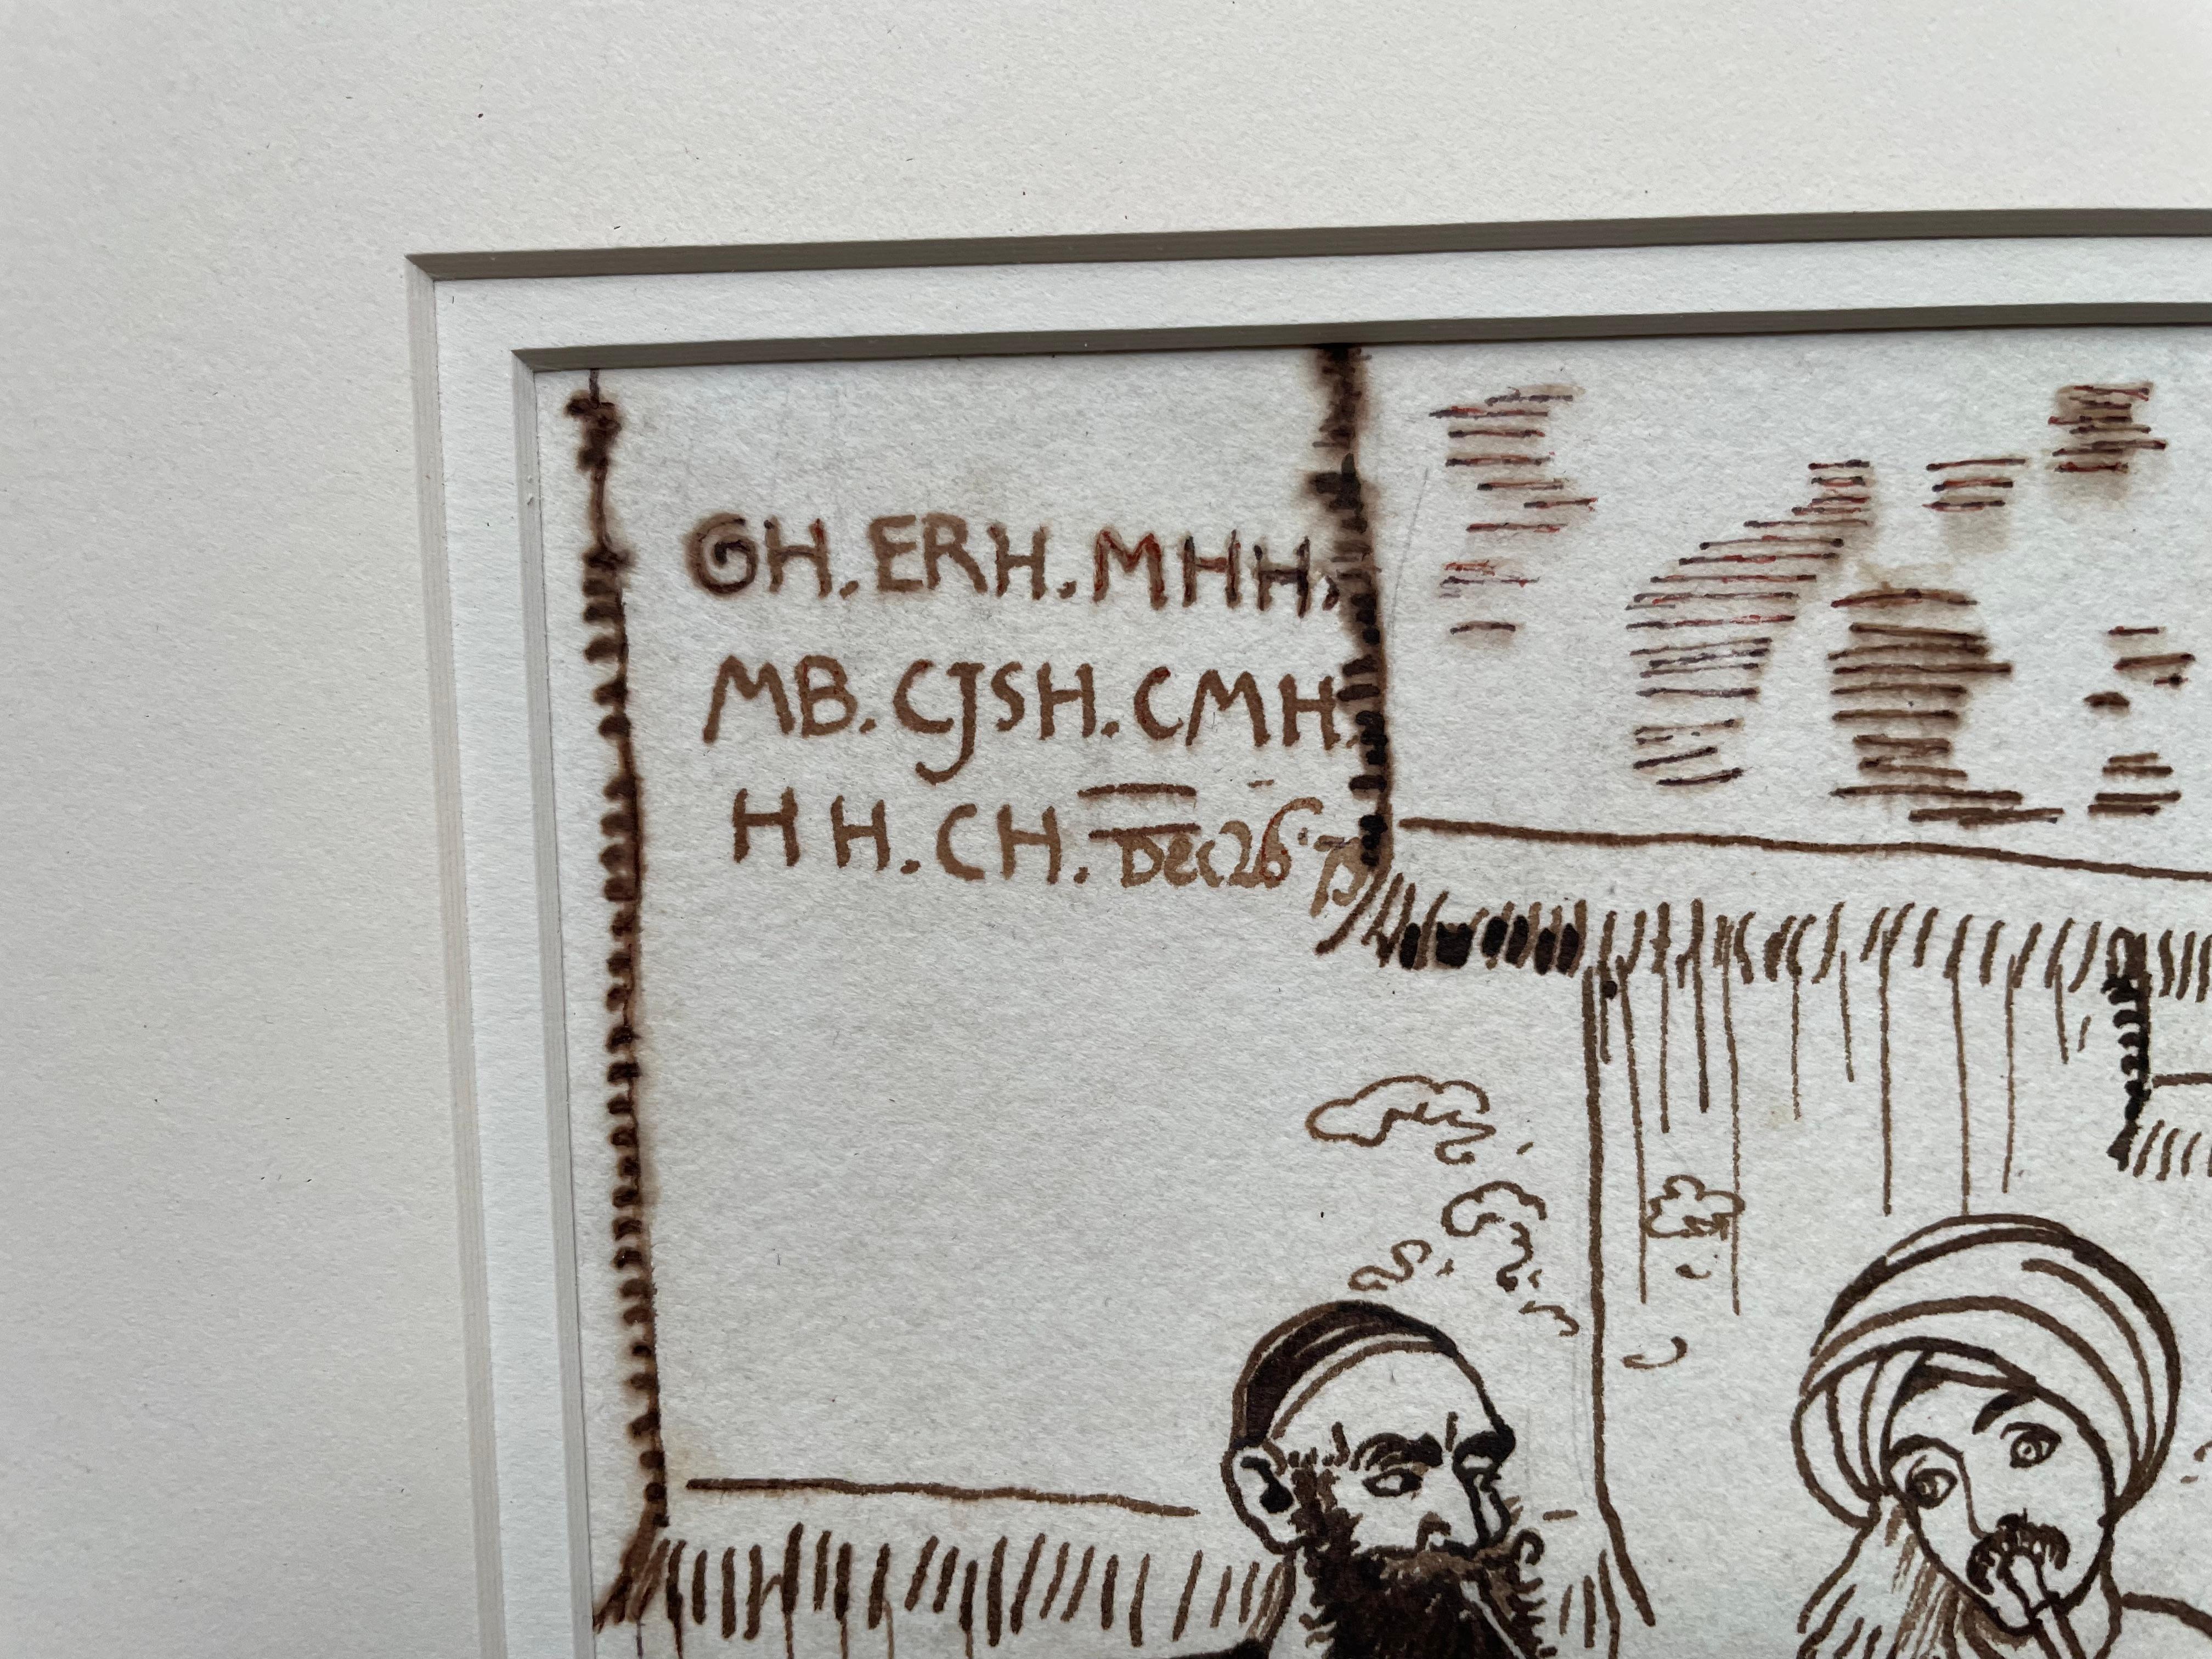 GH. ERH. MHH.
MB. CJSH. CMH.
HH. CH. Dec 26